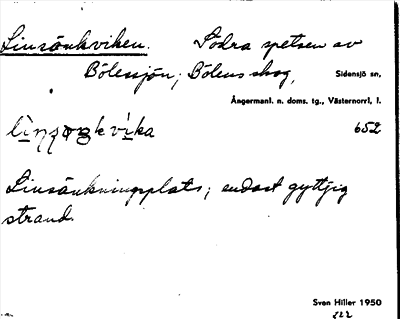 Linsänkviken. Södra spetsen av
Bölessjön, Bölens skog, Sidensjö sn,
Ångermanl. n. doms. tg., Västernorrl. l.
652
Linsänkningsplats; endast gyttjig
strand.
Sven Hiller 1950
222